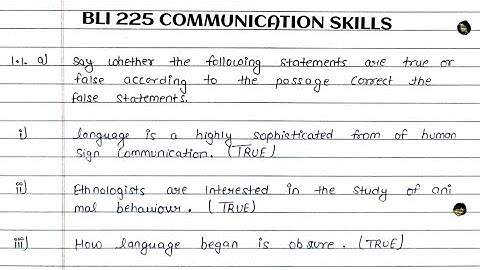 BLI 225 COMMUNICATION SKILLS
1.1. a) Say whether the following statements are true or
false according to the passage correct the
false statements.
i) language is a highly sophisticated from of human
sign communication. (TRUE)
ii) Ethnologists are Interested in the study of ani
mal behaviour. (TRUE)
iii) How language began is obsure. (TRUE)